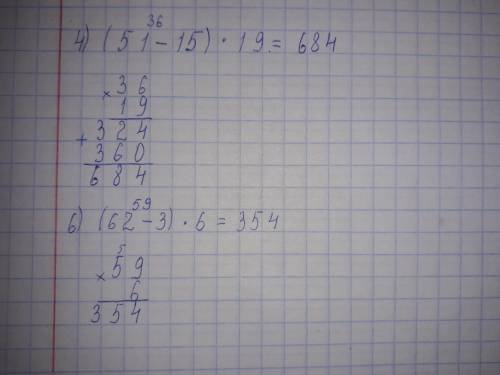 36
4) (51 - 15) · 19 = 684
× 36
19
+ 324
360
684
59
6) (62 - 3) · 6 = 354
5
× 59
6
354